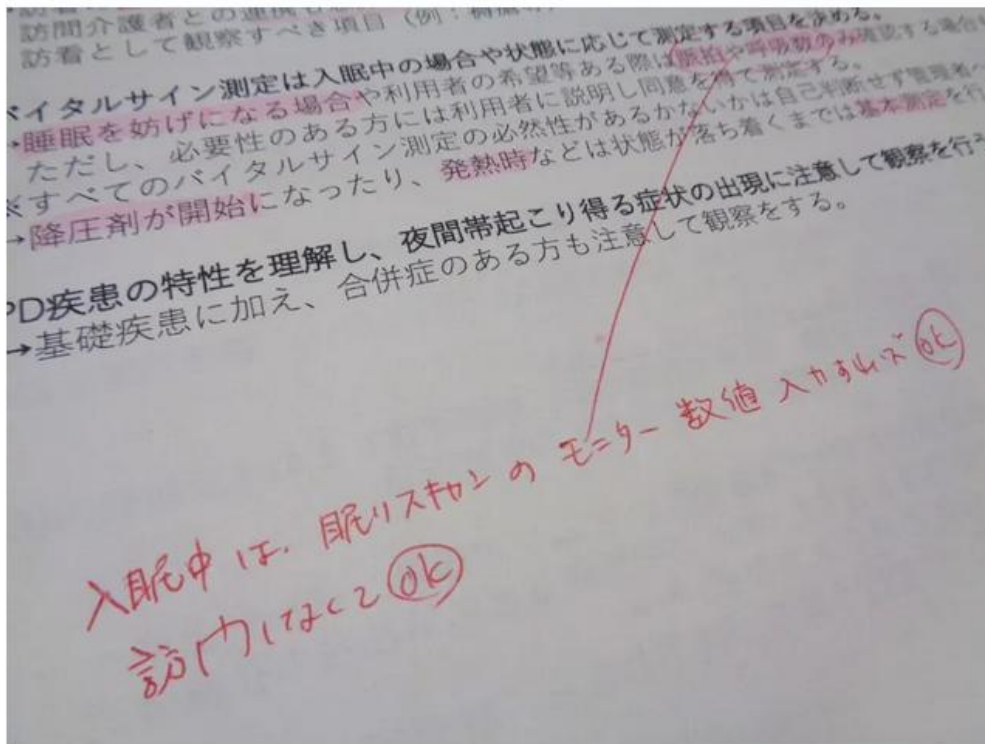 訪問介護者との連携
訪看として観察すべき項目（例：褥瘡
バイタルサイン測定は入眠中の場合や状態に応じて測定する項目を決める。
→睡眠を妨げになる場合や利用者の希望等ある際は脈拍や呼吸数のみ確認する場合
ただし、必要性のある方には利用者に説明し同意を得て測定する。
※すべてのバイタルサイン測定の必然性があるかないかは自己判断せず管理者へ
→降圧剤が開始になったり、発熱時などは状態が落ち着くまでは基本測定を行
PD疾患の特性を理解し、夜間帯起こり得る症状の出現に注意して観察を行う
→基礎疾患に加え、合併症のある方も注意して観察をする。
入眠中は、眠りスキャンのモニター数値入力すれば ok
訪問しなくて ok